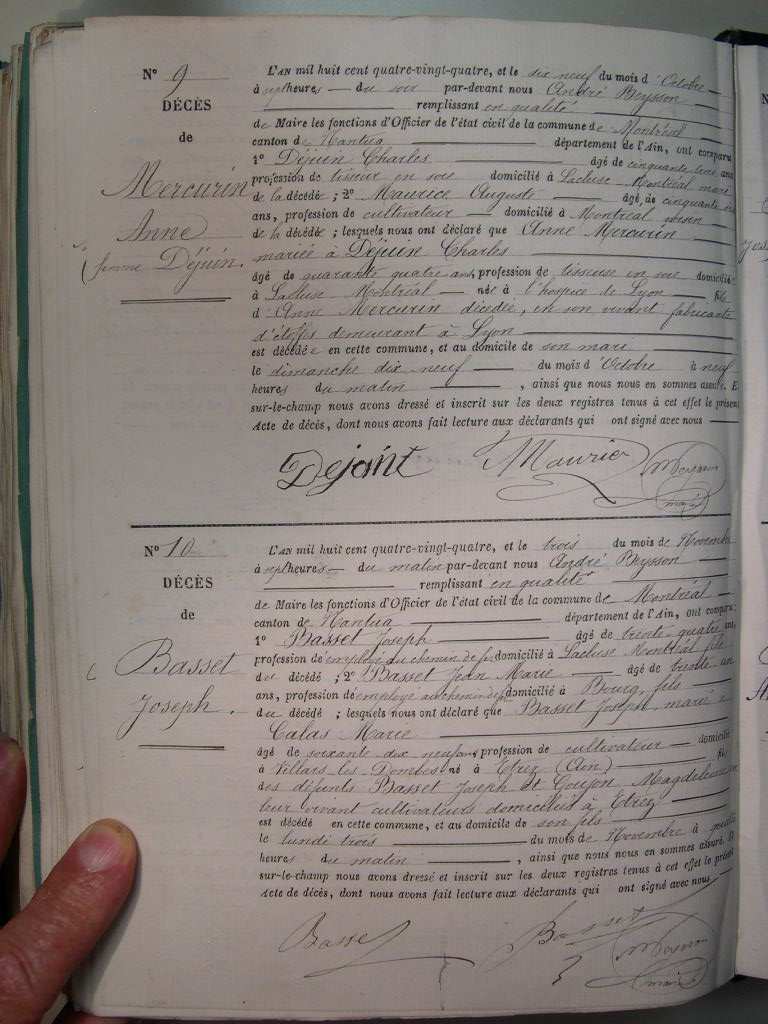 N° 9
DÉCÈS
de
Mercurin
Anne
femme Déjuin.
L'AN mil huit cent quatre-vingt-quatre, et le dix neuf du mois d'Octobre
à sept heures du soir par-devant nous André Beysson
remplissant en qualité
de Maire les fonctions d'Officier de l'état civil de la commune de Montréal
canton de Nantua département de l'Ain, ont comparu
1° Déjuin Charles âgé de cinquante trois ans
profession de tisseur en soie domicilié à Lacluse Montréal mari
de la décédée ; 2° Maurice Auguste âgé, de cinquante
ans, profession de cultivateur domicilié à Montréal voisin
de la décédée ; lesquels nous ont déclaré que Anne Mercurin
mariée à Déjuin Charles
âgé de quarante quatre ans, profession de tisseuse en soie domicilié
à Lacluse Montréal née à l'hospice de Lyon fille
d'Anne Mercurin décédée, en son vivant fabricante
d'étoffes demeurant à Lyon
est décédée en cette commune, et au domicile de son mari
le dimanche dix neuf du mois d'Octobre à neuf
heures du matin , ainsi que nous nous en sommes assuré. E
sur-le-champ nous avons dressé et inscrit sur les deux registres tenus à cet effet le présen
Acte de décès, dont nous avons fait lecture aux déclarants qui ont signé avec nous
Dejoint Maurice
maire
N° 10
DÉCÈS
de
Basset
Joseph.
L'AN mil huit cent quatre-vingt-quatre, et le trois du mois de Novembre
à sept heures du matin par-devant nous André Beysson
remplissant en qualité
de Maire les fonctions d'Officier de l'état civil de la commune de Montréal
canton de Nantua département de l'Ain, ont comparu
1° Basset Joseph âgé de trente quatre ans,
profession de employé au chemin de fer domicilié à Lacluse Montréal fils
du décédé ; 2° Basset Jean Marie âgé de trente un
ans, profession de employé au chemin de fer domicilié à Bourg, fils
du décédé ; lesquels nous ont déclaré que Basset Joseph, marié à
Calas Marie
âgé de soixante dix neuf ans, profession de cultivateur domicilié
à Villars les Dombes né à Étrez (Ain) fils
des défunts Basset Joseph et Goujon Magdeleine en
leur vivant cultivateurs domiciliés à Étrez
est décédé en cette commune, et au domicile de son fils
le lundi trois du mois de Novembre à
heures du matin , ainsi que nous nous en sommes assuré. Et
sur-le-champ nous avons dressé et inscrit sur les deux registres tenus à cet effet le présent
Acte de décès, dont nous avons fait lecture aux déclarants qui ont signé avec nous
Basset Basset
maire